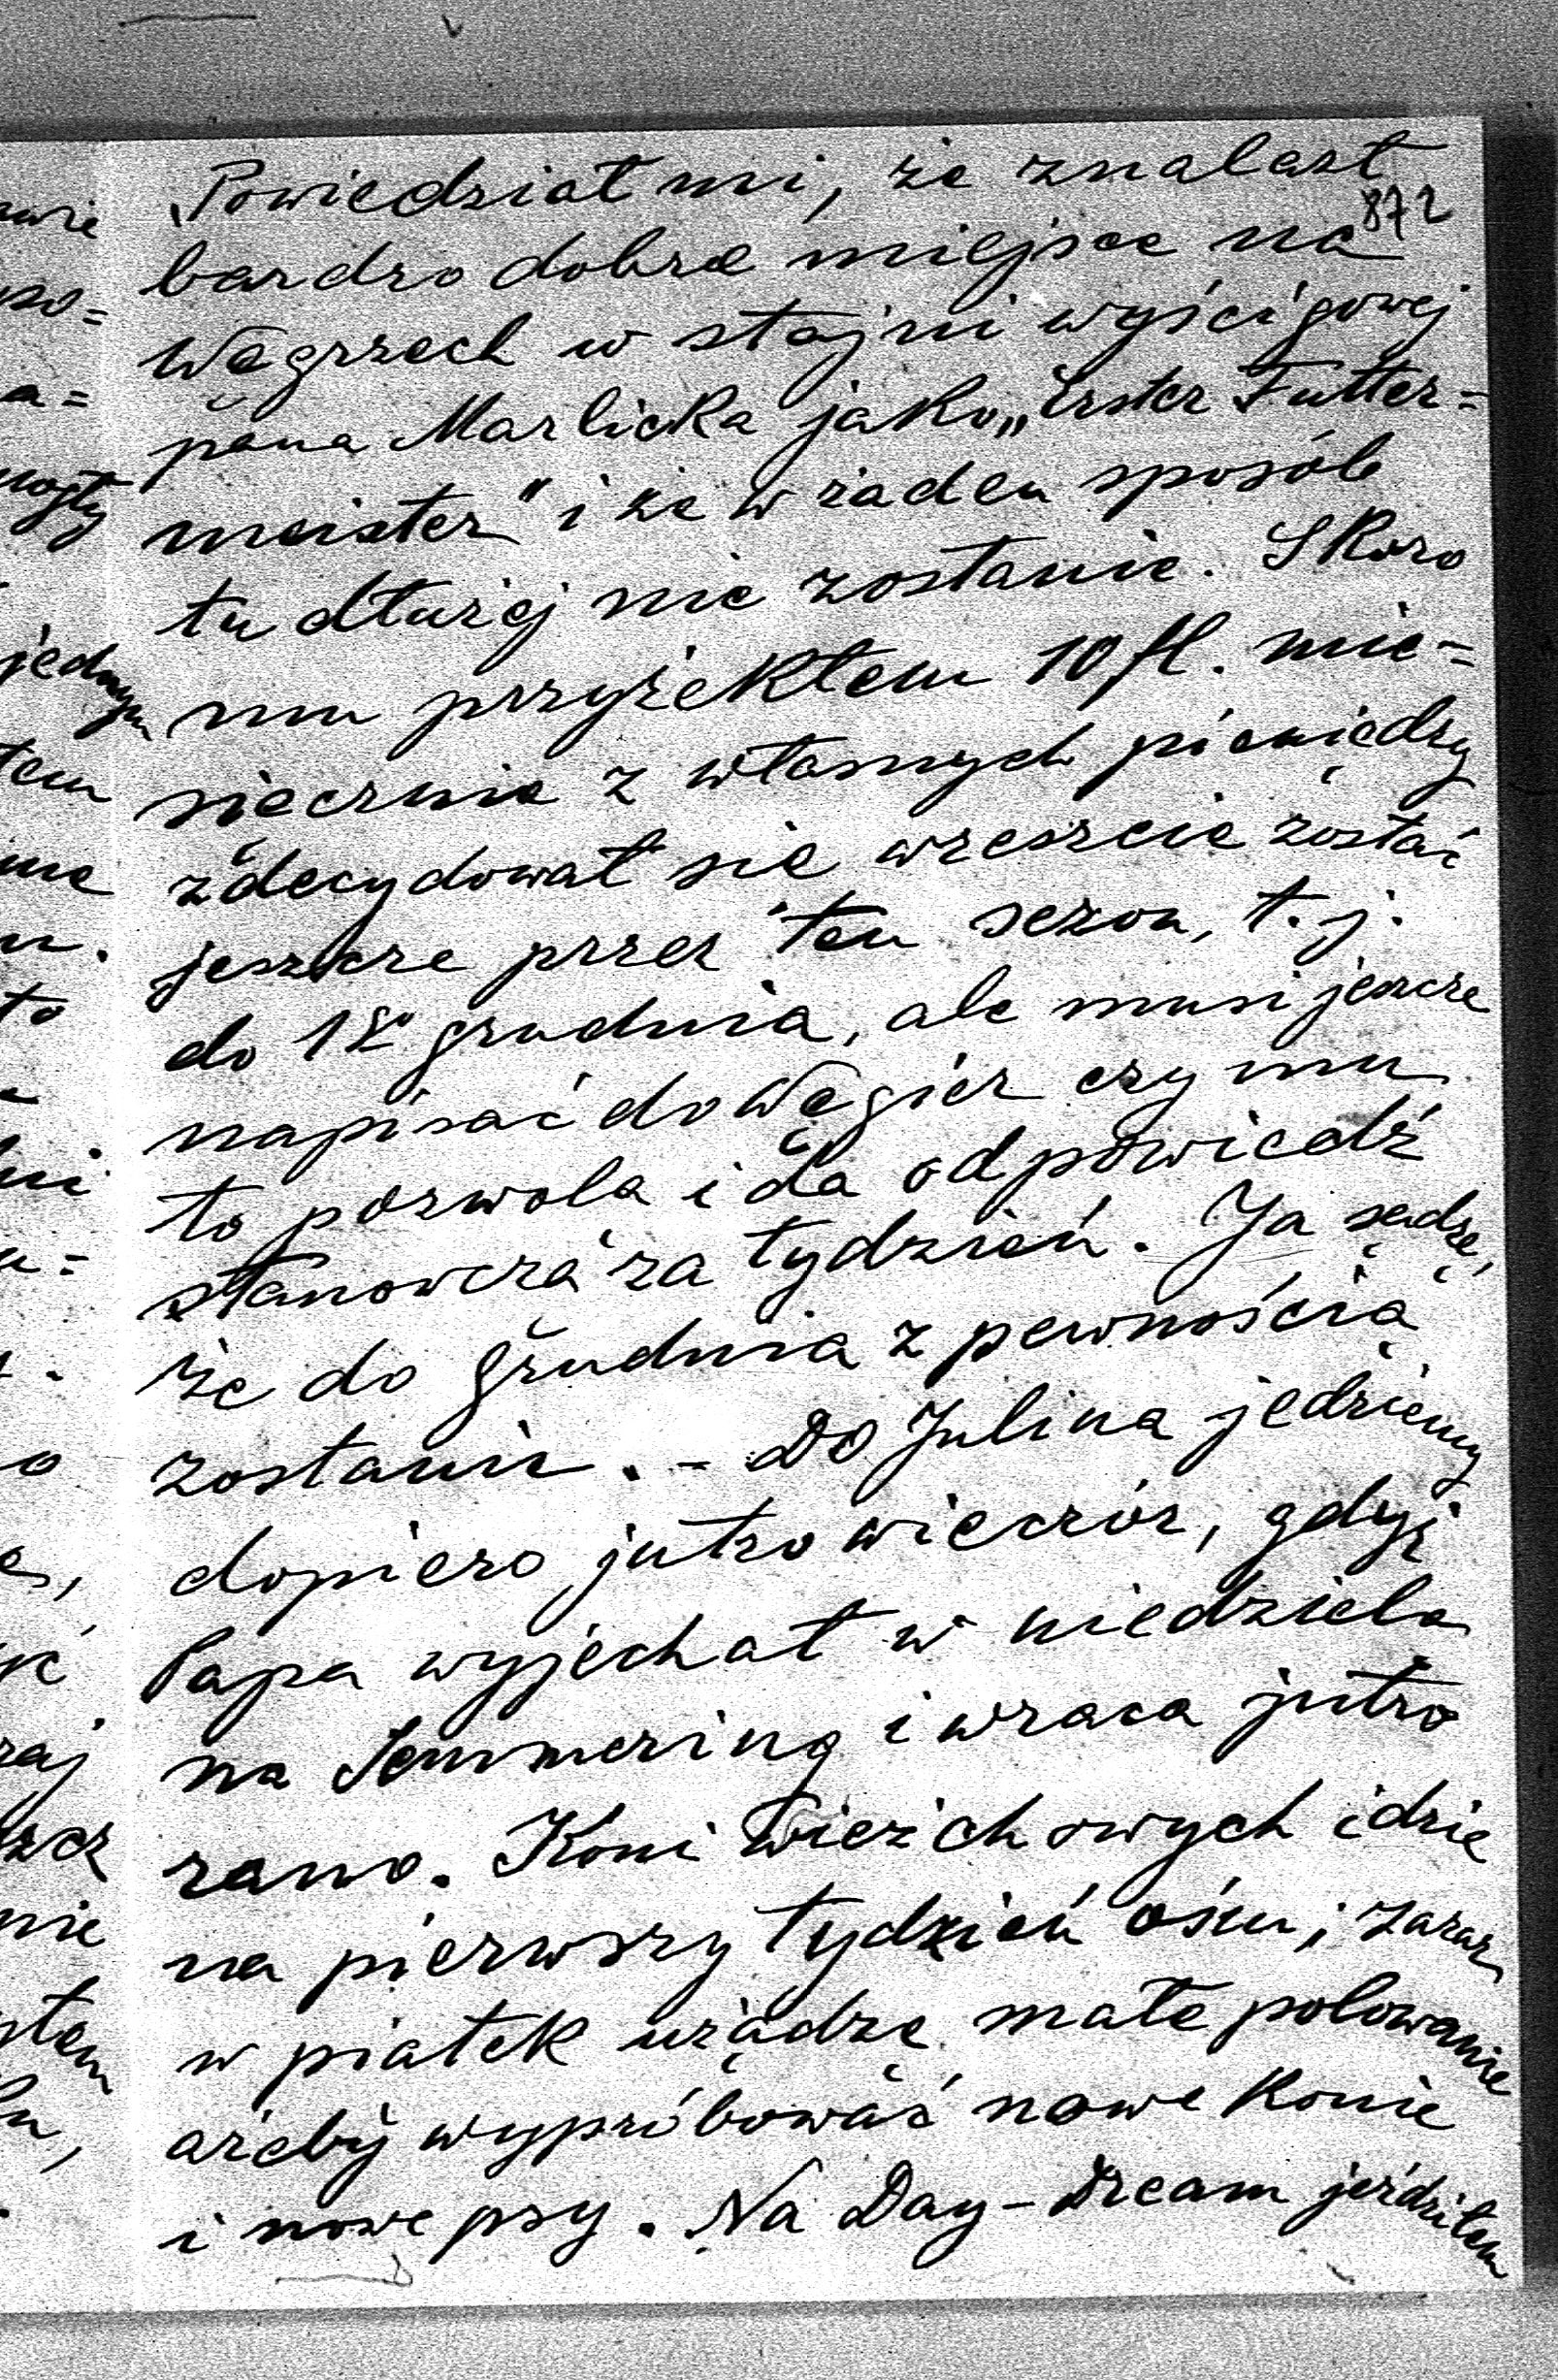 Powiedział mi, że znalazł
872
bardzo dobre miejsce na
Węgrzech w stajni wyścigowej
pana Marlicka jako „Erster Futter=
meister" i że w żaden sposób
tu dłużej nie zostanie. Skoro
mu przyżekłem 10 fl. mie=
sięcznie z własnych pieniędzy
zdecydował się wreszcie zostać
jeszcze przez ten sezon, t. j.
do 1go grudnia, ale musi jeszcze
napisać do Węgier czy mu
to pozwolą i da odpowiedź
stanowczą za tydzień. Ja sądzę,
że do grudnia z pewnością
zostanie. - Do Julina jedziemy
dopiero jutro wieczór, gdyż
Papa wyjechał w niedzielę
na Semmering i wraca jutro
rano. Koni wierzchowych idzie
na pierwszy tydzień ośm; zaraz
w piątek urządzę małe polowanie
ażeby wypróbować nowe konie
i nowe psy. Na Day-Dream jeździłem